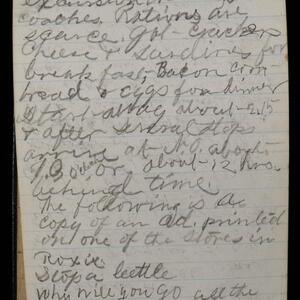 coaches. Rations are
scarce. Got crackers
cheese & sardines for
breakfast, Bacon corn
bread & eggs for dinner
Start along about 2.15
& after several stops
arrive at N.O. about
7.30 o'clock or about 12 hrs.
behind time
The following is a
copy of an ad. printed
on one of the stores in
Roxie.
Stop a leettle
Why will you go all the